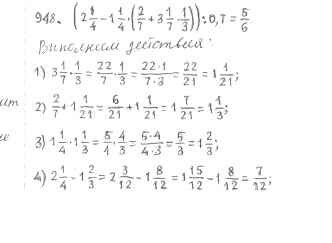 948. (2 1/4 - 1 1/4 · (2/7 + 3 1/7 · 1/3)) : 0,7 = 5/6
Выполним действия:
1) 3 1/7 · 1/3 = 22/7 · 1/3 = 22·1/7·3 = 22/21 = 1 1/21;
2) 2/7 + 1 1/21 = 6/21 + 1 1/21 = 1 7/21 = 1 1/3;
3) 1 1/4 · 1 1/3 = 5/4 · 4/3 = 5·4/4·3 = 5/3 = 1 2/3;
4) 2 1/4 - 1 2/3 = 2 3/12 - 1 8/12 = 1 15/12 - 1 8/12 = 7/12;